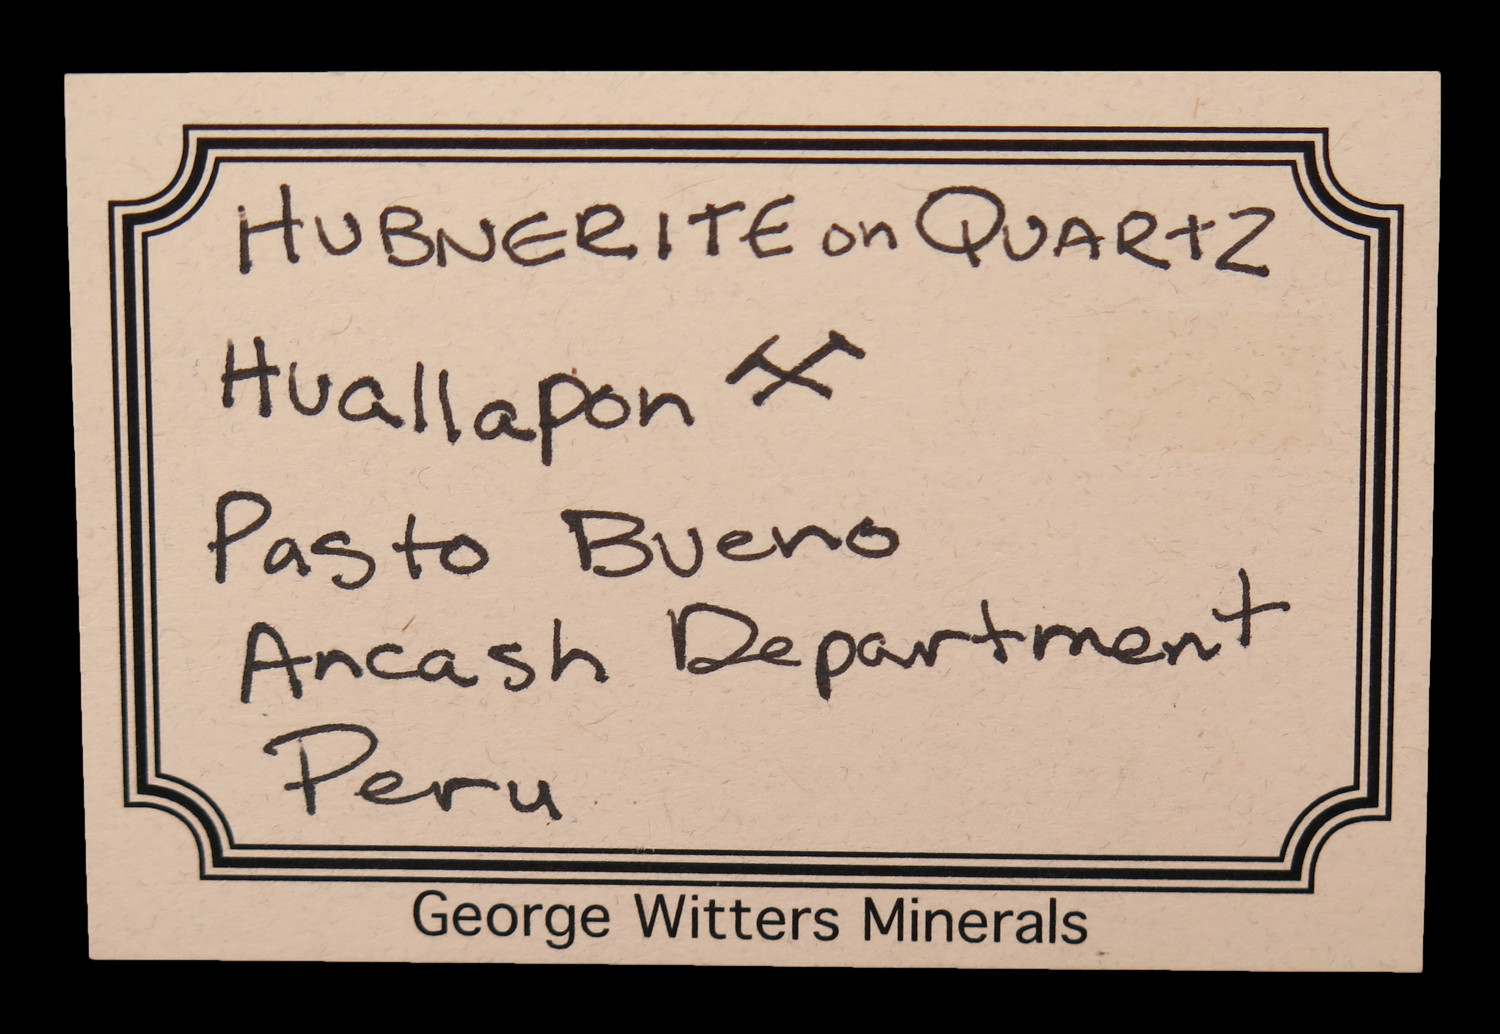 HUBNERITE on QUARTZ
Huallapon ⚒
Pasto Bueno
Ancash Department
Peru
George Witters Minerals